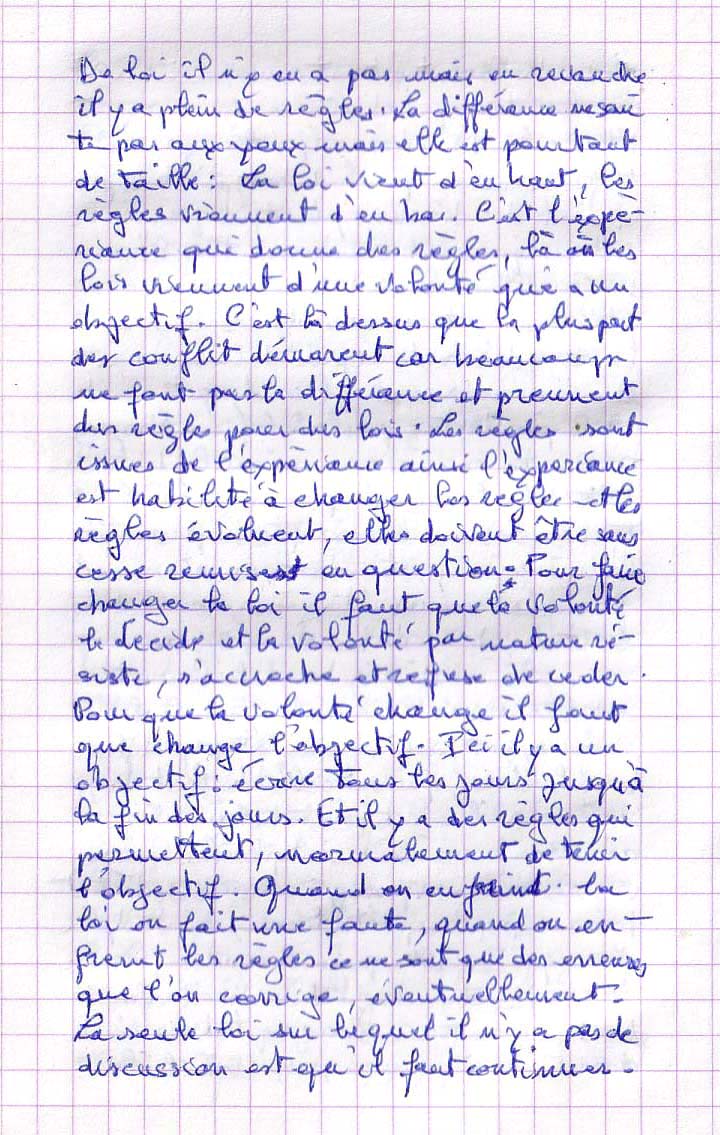 De loi il n'y en a pas mais en revanche
il y a plein de règles. La différence ne sau
te pas aux yeux mais elle est pourtant
de taille : La loi vient d'en haut, les
règles viennent d'en bas. C'est l'expé-
riance qui donne des règles, là où les
lois viennent d'une volonté qui a un
objectif. C'est là dessus que la pluspart
des conflit démarent car beaucoup
ne font pas la différence et prennent
des règles pour des lois. Les règles sont
issues de l'expèriance ainsi l'experiance
est habilité à changer les règles et les
règles évoluent, elles doivent être sans
cesse remises en question. Pour faire
changer la loi il faut que la volonté
le décide et la volonté par nature ré-
siste, s'accroche et refuse de ceder.
Pour que la volonté change il faut
que change l'objectif. Ici il y a un
objectif : écrire tous les jours jusqu'à
la fin des jours. Et il y a des règles qui
permettent, normalement de tenir
l'objectif. Quand on enfreint la
loi on fait une faute, quand on en-
freint les règles ce ne sont que des erreurs,
que l'on corrige, éventuellement.
La seule loi sur lequel il n'y a pas de
discussion est qu'il faut continuer.